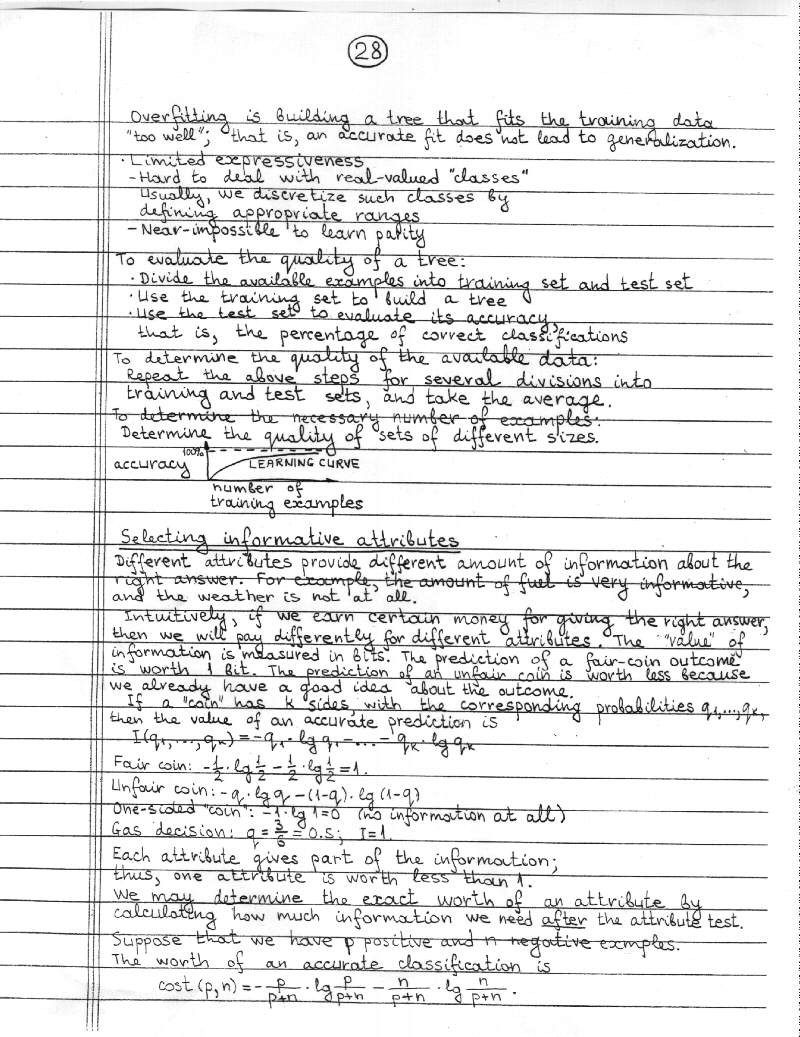 28
Overfitting is building a tree that fits the training data
"too well"; that is, an accurate fit does not lead to generalization.
· Limited expressiveness
- Hard to deal with real-valued "classes"
Usually, we discretize such classes by
defining appropriate ranges
- Near-impossible to learn parity
To evaluate the quality of a tree:
· Divide the available examples into training set and test set
· Use the training set to build a tree
· Use the test set to evaluate its accuracy,
that is, the percentage of correct classifications
To determine the quality of the available data:
Repeat the above steps for several divisions into
training and test sets, and take the average.
To determine the necessary number of examples:
Determine the quality of sets of different sizes.
100%
accuracy LEARNING CURVE
number of
training examples
Selecting informative attributes
Different attributes provide different amount of information about the
right answer. For example, the amount of fuel is very informative,
and the weather is not at all.
Intuitively, if we earn certain money for giving the right answer,
then we will pay differently for different attributes. The "value" of
information is measured in bits. The prediction of a fair-coin outcome
is worth 1 bit. The prediction of an unfair coin is worth less because
we already have a good idea about the outcome.
If a "coin" has k sides, with the corresponding probabilities q₁,...,qₖ,
then the value of an accurate prediction is
I(q₁,...,qₖ) = -q₁·lg q₁ - ... - qₖ·lg qₖ
Fair coin: -1/2·lg 1/2 - 1/2·lg 1/2 = 1.
Unfair coin: -q·lg q - (1-q)·lg (1-q)
One-sided "coin": -1·lg 1=0 (no information at all)
Gas decision: q = 3/6 = 0.5; I=1.
Each attribute gives part of the information;
thus, one attribute is worth less than 1.
We may determine the exact worth of an attribute by
calculating how much information we need after the attribute test.
Suppose that we have p positive and n negative exmples.
The worth of an accurate classification is
cost (p,n) = -p/(p+n)·lg p/(p+n) - n/(p+n)·lg n/(p+n).